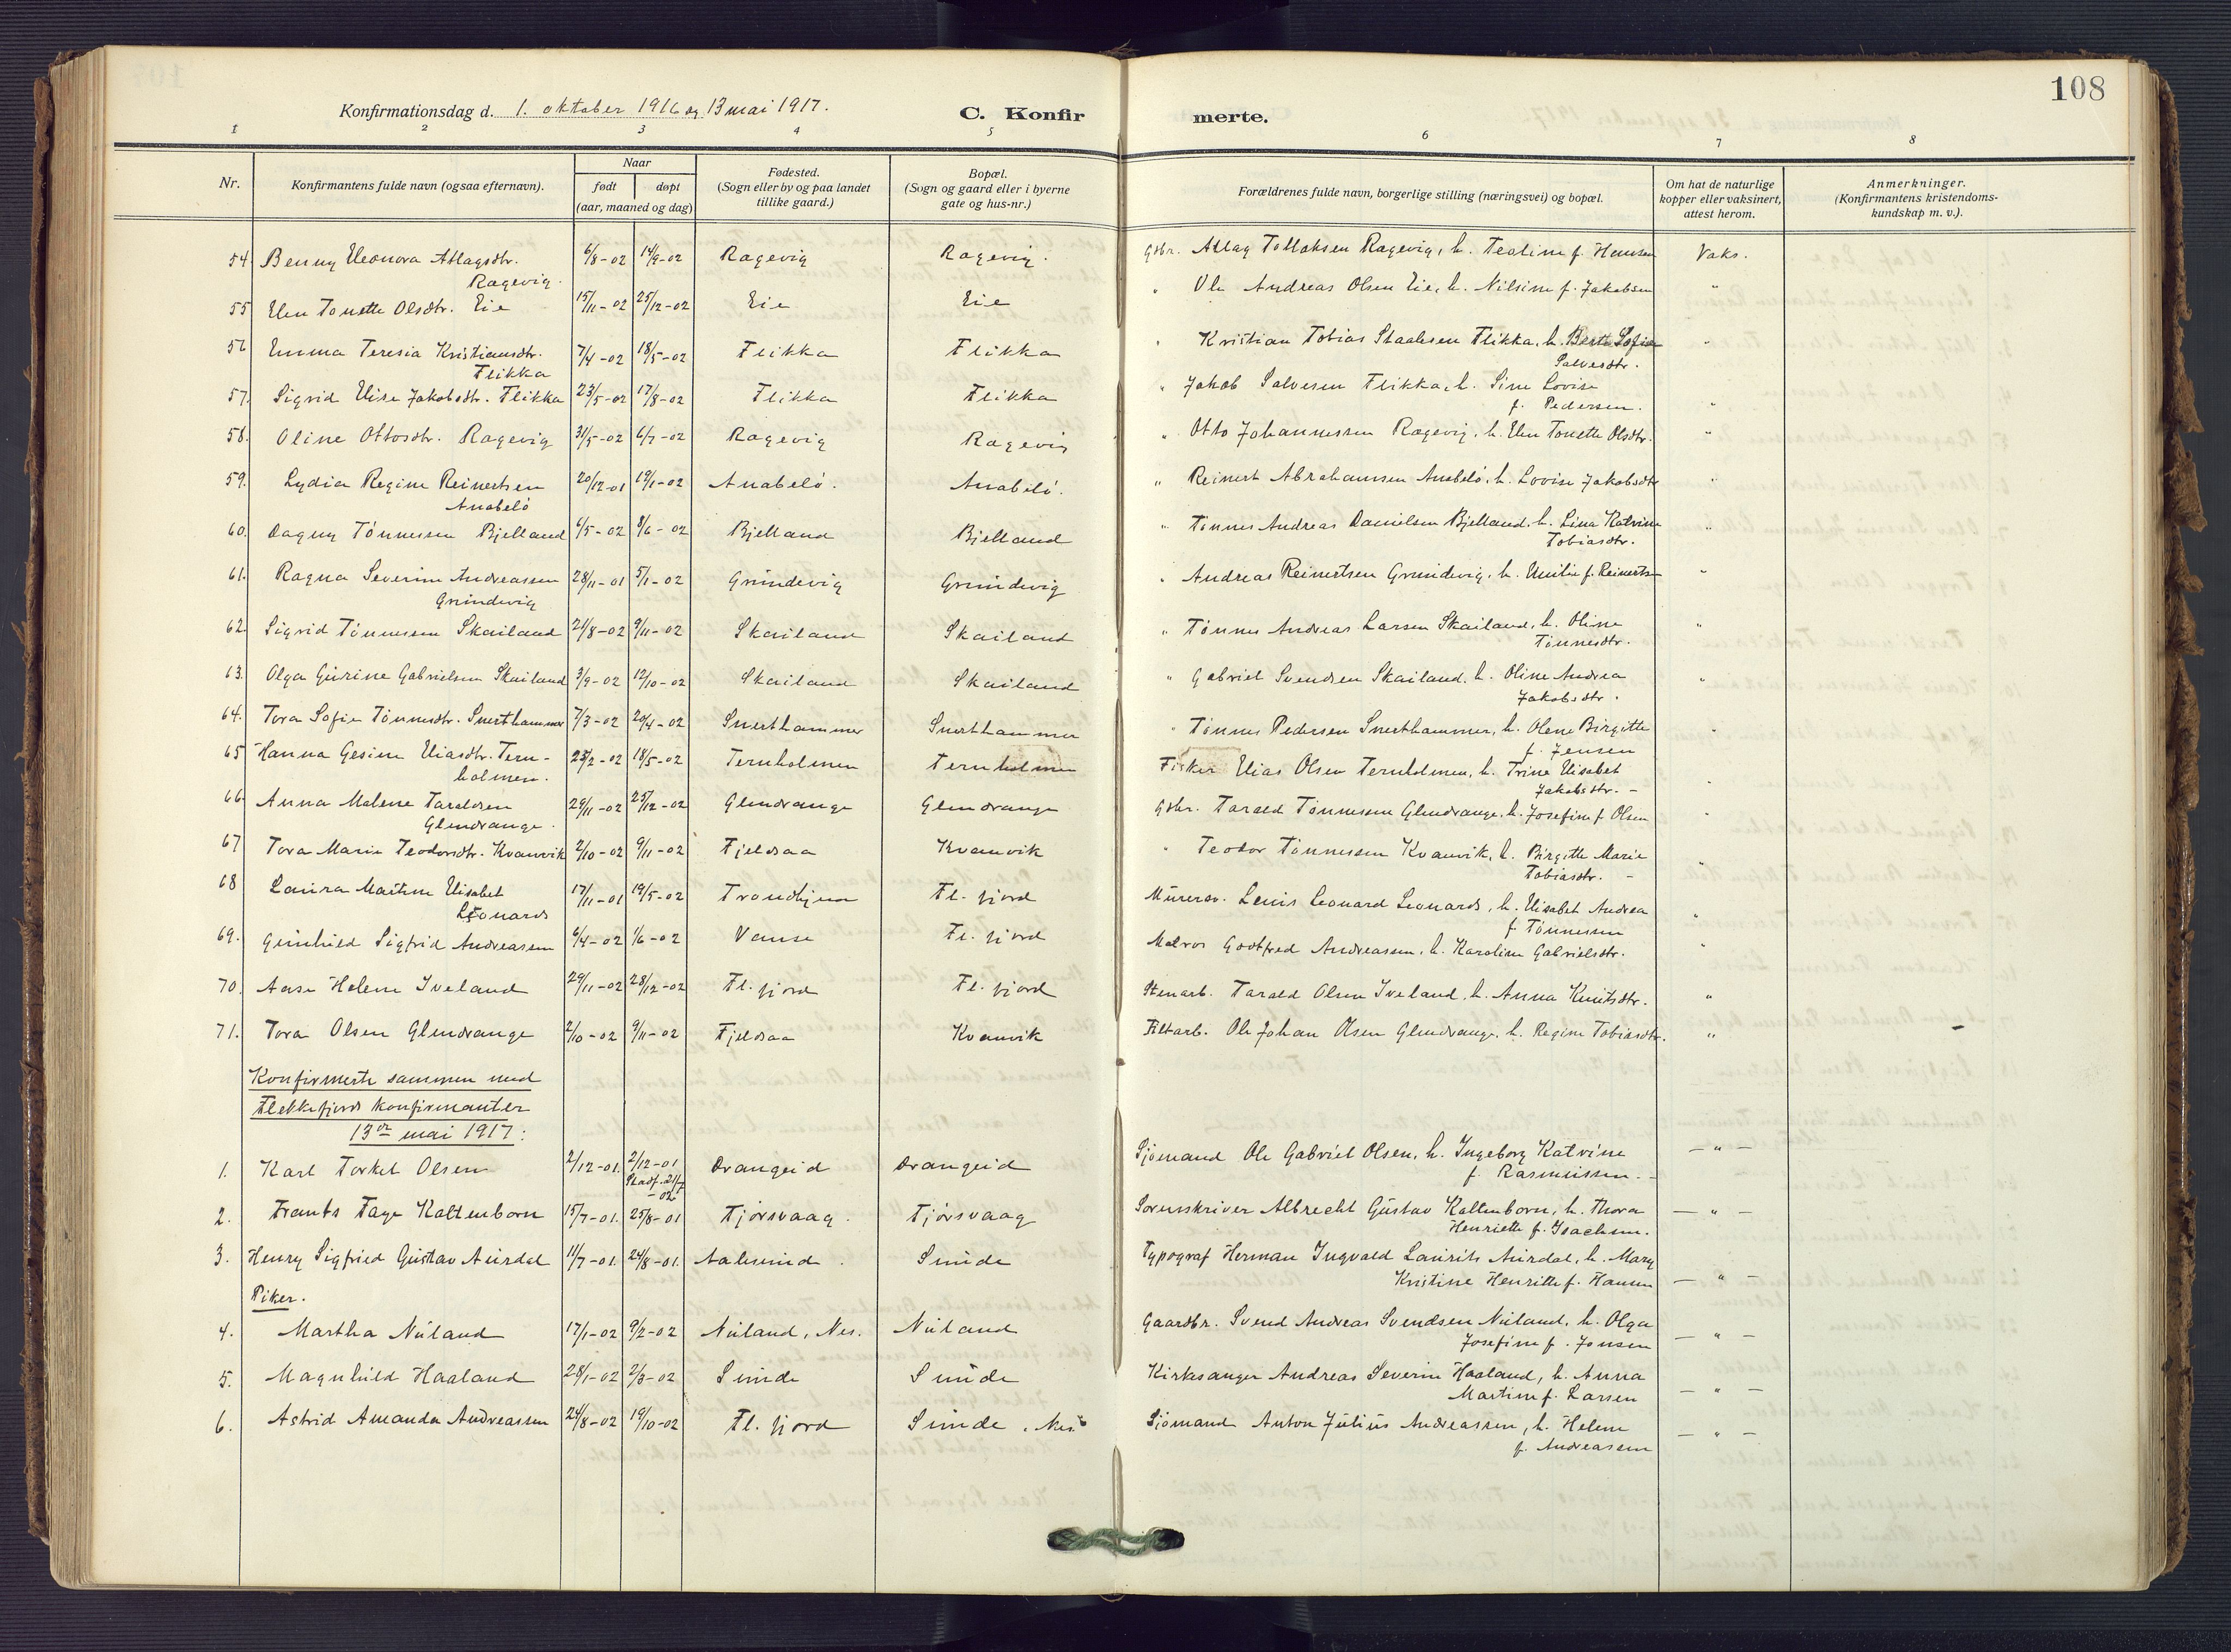 108
Konfirmationsdag d. 1. oktober 1916 og 13 mai 1917.
C. Konfirmerte.
1 2 3 4 5 6 7 8
Nr.
Konfirmantens fulde navn (ogsaa efternavn).
Naar
født døpt
(aar, maaned og dag)
Fødested.
(Sogn eller by og paa landet
tillike gaard.)
Bopæl.
(Sogn og gaard eller i byerne
gate og hus-nr.)
Forældrenes fulde navn, borgerlige stilling (næringsvei) og bopæl.
Om hat de naturlige
kopper eller vaksinert,
attest herom.
Anmerkninger.
(Konfirmantens kristendoms-
kundskap m. v.).
54 Benny Eleonora Atlagsdtr. 6/8-02 14/9-02 Ragevig Ragevig. Gbr. Atlag Tollaksen Ragevig, h. Teoline f. Hansen Vaks.
Ragevig.
55 Elen Tonette Olsdtr. Eie 15/11-02 25/12-02 Eie Eie " Ole Andreas Olsen Eie, h. Nilsine f. Jakobsen "
56 Emma Teresia Kristiansdtr. 7/4-02 18/5-02 Flikka Flikka " Kristian Tobias Staalesen Flikka, h. Berte Sofie "
Flikka Salvesdtr.
57. Sigrid Elise Jakobsdtr. Flikka 23/5-02 17/8-02 Flikka Flikka " Jakob Salvesen Flikka, h. Sine Lovise
f. Pedersen. "
58. Oline Ottosdtr. Ragevig 31/5-02 6/7-02 Ragevig Ragevig " Otto Johannessen Ragevig, h. Elen Tonette Olsdtr. "
59. Lydia Regine Reinertsen 20/12-01 19/1-02 Anabelø. Anabelø. " Reinert Abrahamsen Anabelø, h. Lovise Jakobsdtr "
Anabelø
60. Dagny Tønnessen Bjelland 6/5-02 8/6-02 Bjelland Bjelland " Tønnes Andreas Danielsen Bjelland, h. Lina Katrine "
Tobiasdtr.
61. Ragna Severine Andreassen 28/11-01 5/1-02 Grundevig Grundevig " Andreas Reinertsen Grundevig, h. Emilie f. Reinertsen "
Grundevig
62. Sigrid Tønnessen Skailand 21/8-02 9/11-02 Skailand Skailand " Tønnes Andreas Larsen Skailand, h. Oline "
Tønnesdtr.
63. Olga Gurine Gabrielsen Skailand 3/9-02 12/10-02 Skailand Skailand " Gabriel Svendsen Skailand, h. Oline Andrea "
Jakobsdtr.
64. Tora Sofie Tønnesdtr. Snerthammer 7/3-02 20/4-02 Snerthammer Snerthammer " Tønnes Pedersen Snerthammer, h. Olene Birgitte "
f. Jensen
65 Hanna Gesine Eliasdtr. Tern- 23/2-02 18/5-02 Ternholmen Ternholmen Fisker Elias Olsen Ternholmen, h. Trine Elisabet "
holmen. Jakobsdtr. -
66. Anna Malene Taraldsen 29/11-02 25/12-02 Glendrange Glendrange Gbr. Tarald Tønnessen Glendrange, h. Josefine f. Olsen "
Glendrange.
67 Tora Marie Teodorsdtr. Kvanvik 2/10-02 9/11-02 Fjeldsaa Kvanvik " Teodor Tønnessen Kvanvik, h. Birgitte Marie "
Tobiasdtr. -
68 Laura Martine Elisabet 17/11-01 19/5-02 Trondhjem Fl. fjord Murerar. Lenis Leonard Leonards, h. Elisabet Andrea "
Leonards f. Tønnessen
69. Gunhild Sigfrid Andreassen 6/4-02 1/6-02 Vanse Fl. fjord Matros Godtfred Andreassen, h. Karoline Gabrielsdtr. "
70. Aase Helene Iveland 29/11-02 28/12-02 Fl. fjord Fl. fjord Stenarb. Tarald Olsen Iveland, h. Anna Knutsdtr. "
71. Tora Olsen Glendrange 2/10-02 9/11-02 Fjeldsaa Kvanvik Filtarb. Ole Johan Olsen Glendrange, h. Regine Tobiasdtr. " -
Konfirmerte sammen med
Flekkefjords konfirmanter
13de mai 1917:
1. Karl Torkel Olsen 2/12-01. 2/12-01 Drangeid Drangeid Sjømand Ole Gabriel Olsen, h. Ingeborg Katrine - " -
Stadf. 21/7 -02 f. Rasmussen. -
2. Frants Tage Kaltenborn 15/7-01. 25/8-01 Tjørsvaag. Tjørsvaag Sorenskriver Albrecht Gustav Kaltenborn, h. Thora - " -
Henriette f. Joachim.
3. Henry Sigfried Gustav Aursdal 11/7-01. 24/8-01. Aalesund. Sunde Typograf Herman Ingvald Laurits Aursdal, h. Mary
Kristine Henriette f. Hansen - " -
Piker.
4. Martha Nuland 17/1-02 9/2-02 Nuland, Nes. Nuland Gaardbr. Svend Andreas Svendsen Nuland, h. Olga
Josefine f. Jonsen - " -
5. Magnhild Haaland 28/1-02 2/3-02 Sunde Sunde Kirkesanger Andreas Severin Haaland, h. Anna
Martine f. Larsen - " -
6. Astrid Amanda Andreassen 24/8-02 19/10-02 Fl. fjord Sunde, Nes Sjømand Anton Julius Andreassen, h. Helene - " -
f. Andreassen